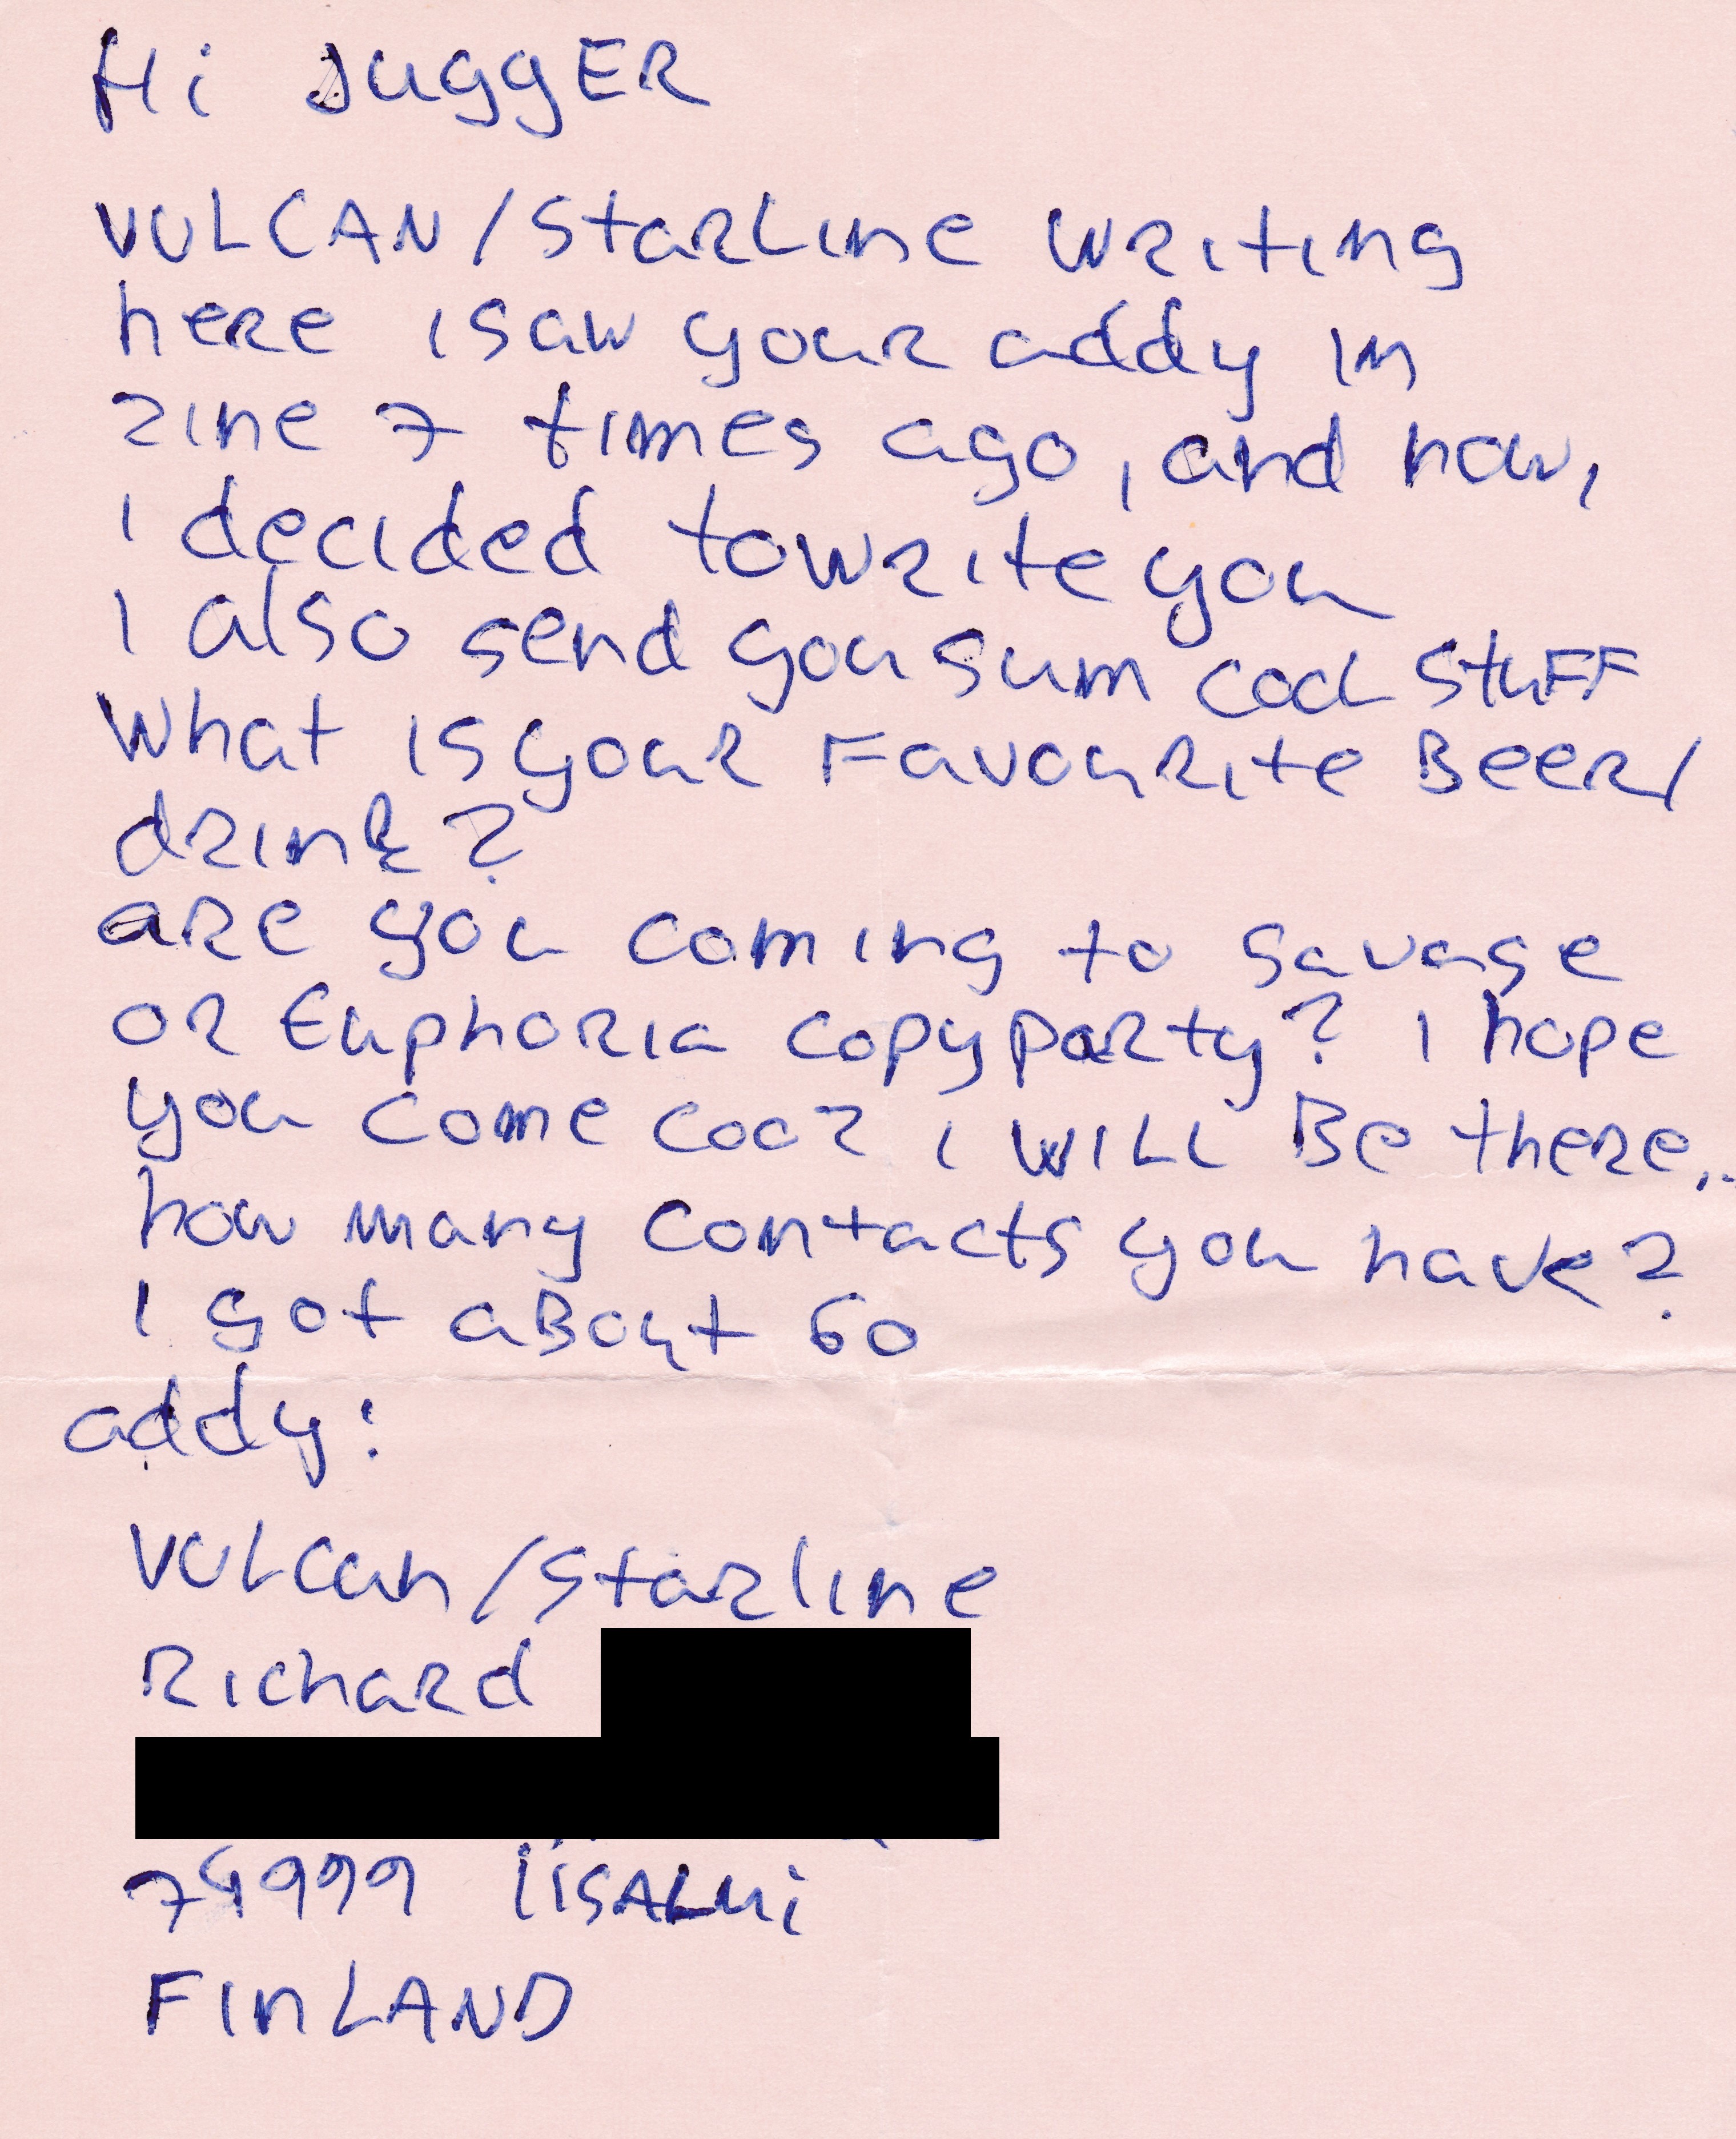 Hi JuggER
VULCAN/StaRLine WRiting
heRe i saw youR addy in
zine 7 times ago, and now,
i decided to wRite you
I also send you sum cooL stuFF
What is youR FavouRite BeeR/
dRink?
aRe you coming to Savage
oR EuphoRia copypaRty? i hope
you come coo? i WiLL Be theRe..
how many contacts you have?
I got aBout 60
addy:
VULcan/StaRline
RichaRd
74999 IiSALMi
FinLAND